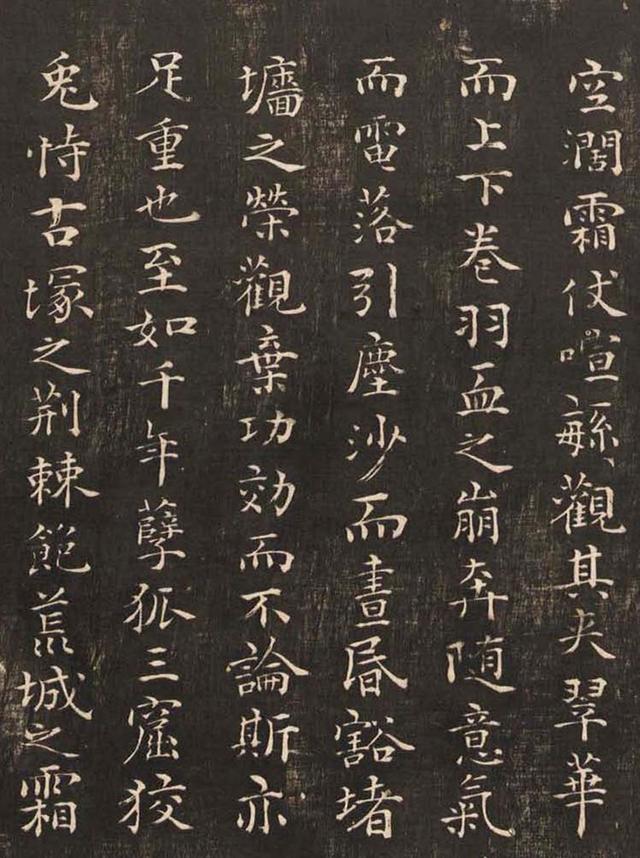 空濶霜仗喧緐觀其夾翠華
而上下卷羽血之崩奔随意氣
而電落引塵沙而晝昬豁堵
墻之榮觀棄功効而不論斯亦
足重也至如千年孽狐三窟狡
兎恃古塚之荆棘飽荒城之霜